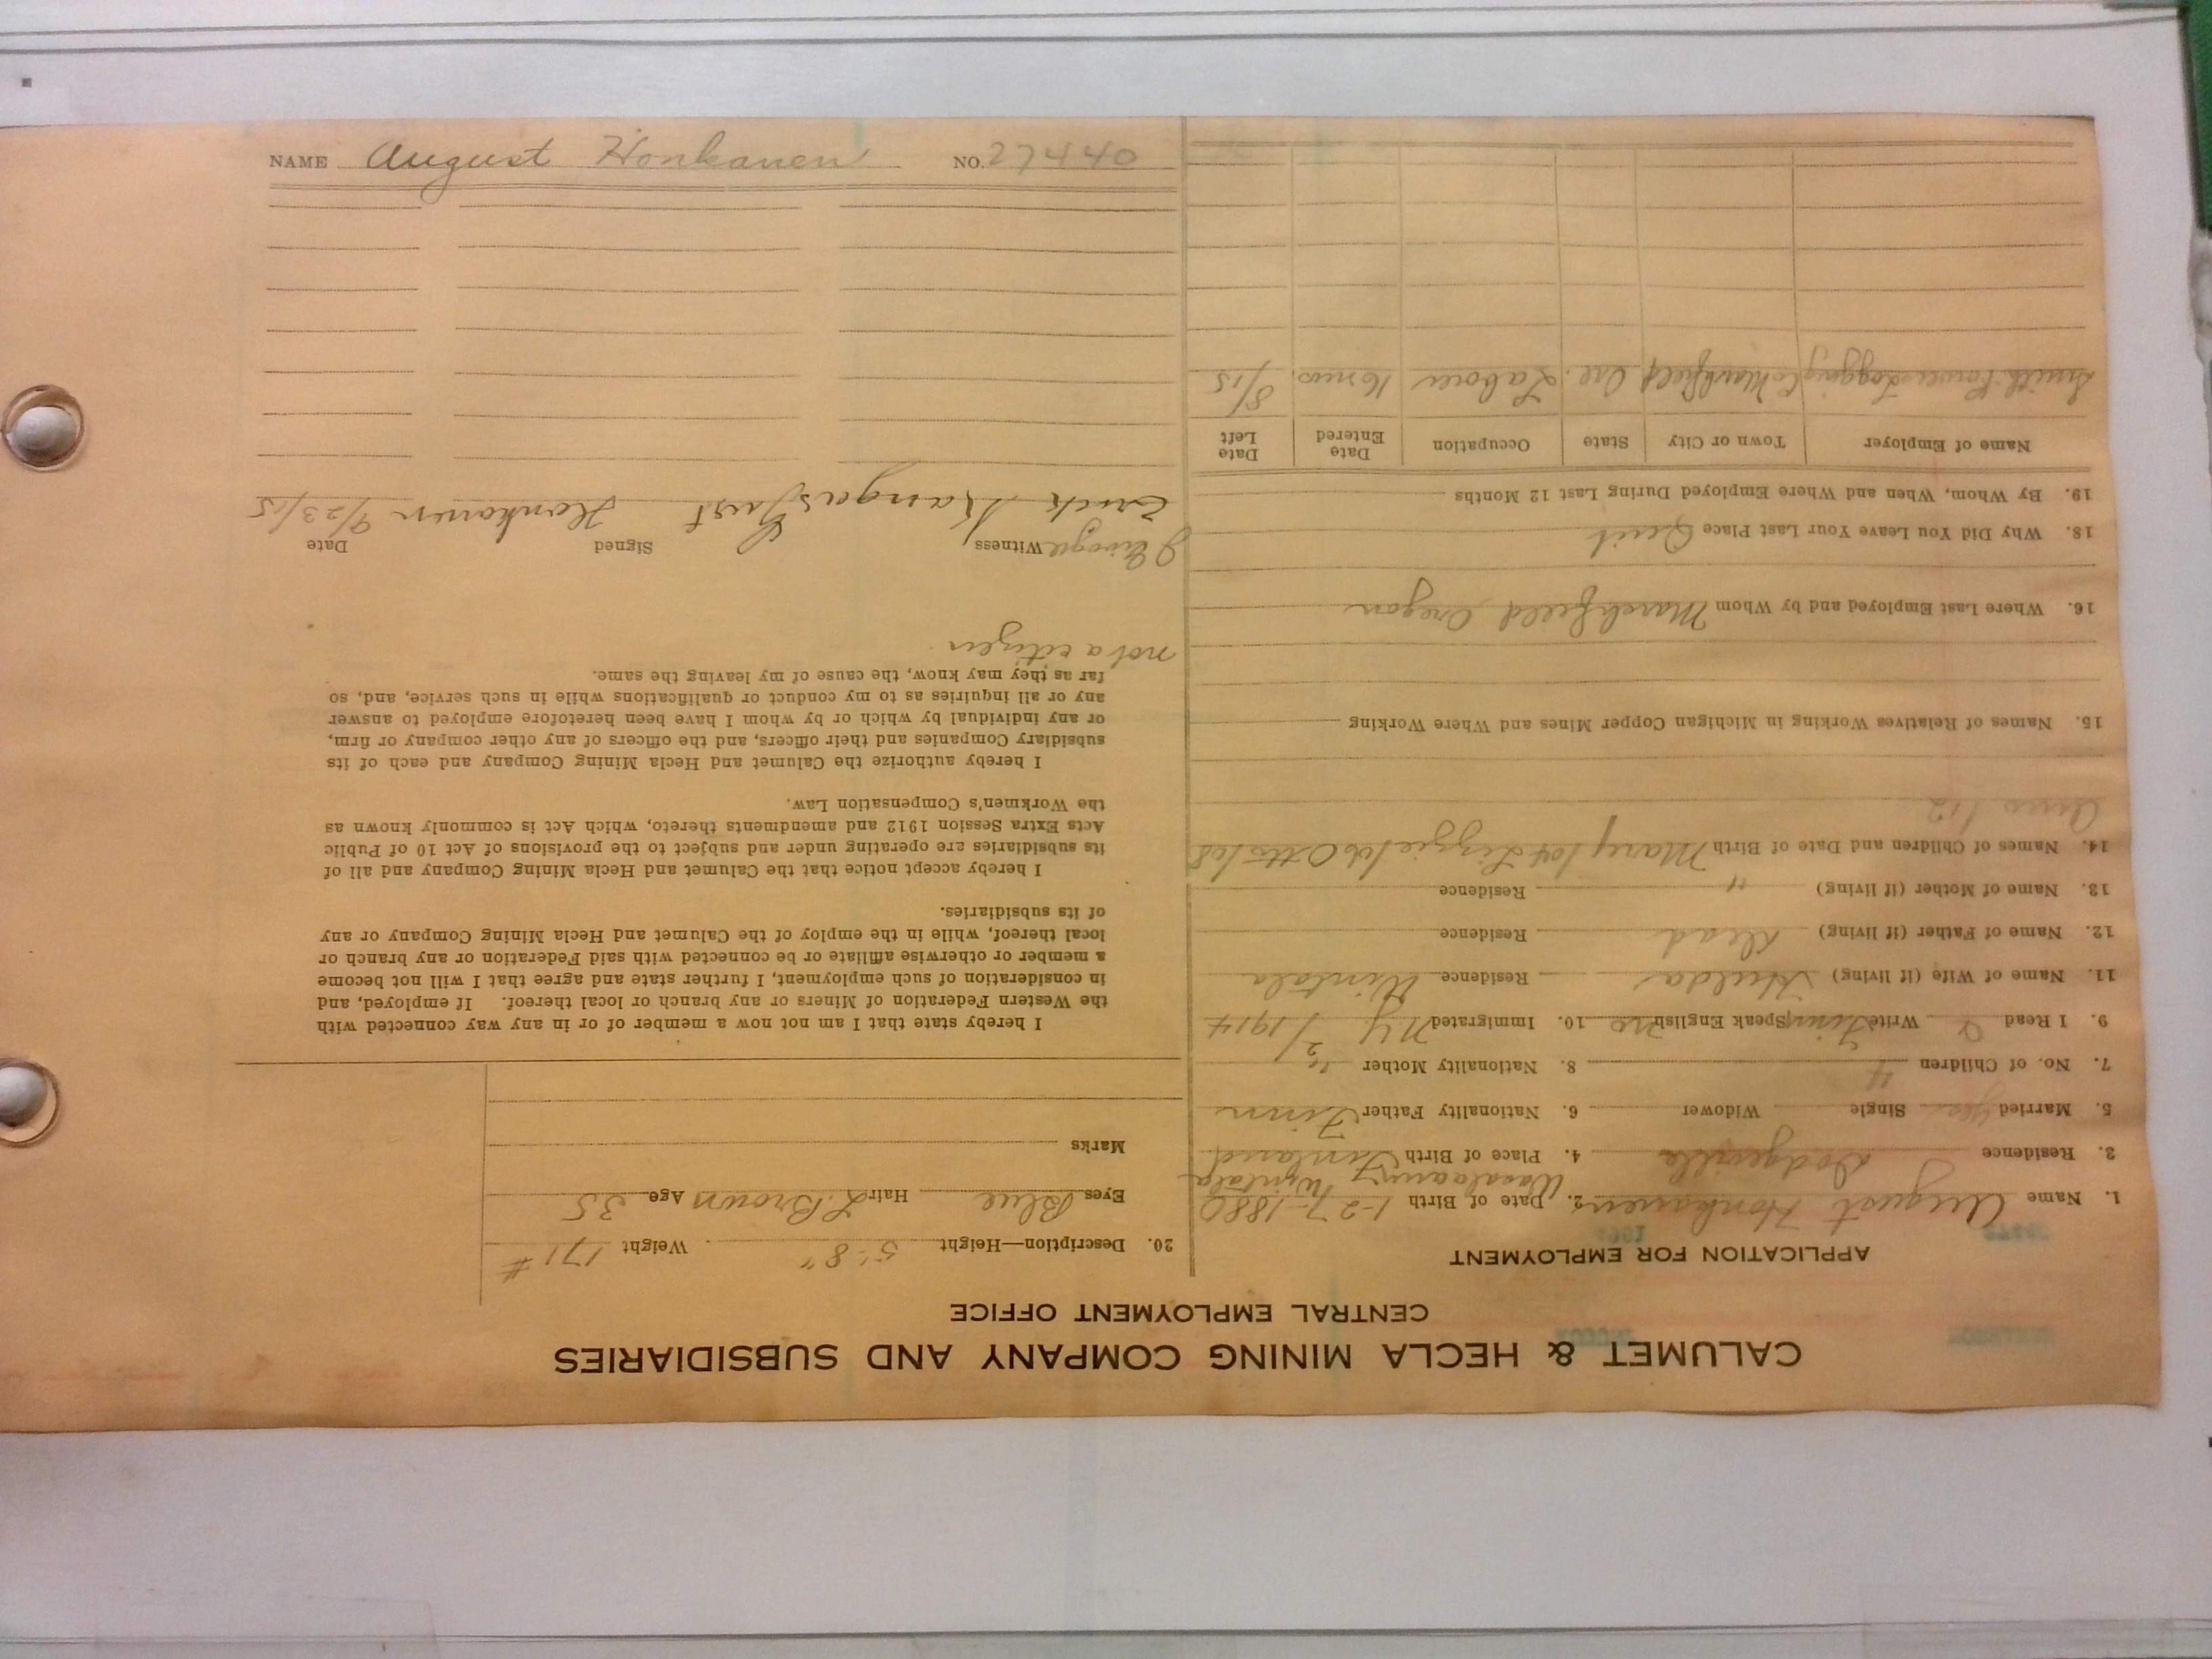 CALUMET & HECLA MINING COMPANY AND SUBSIDIARIES
CENTRAL EMPLOYMENT OFFICE
APPLICATION FOR EMPLOYMENT
1. Name August Honkanen 2. Date of Birth 1-27-1880
2. Residence Dodgeville 4. Place of Birth Finland
5. Married Yes Single Widower 6. Nationality Father Finn
7. No. of Children 4 8. Nationality Mother "
9. I Read Write Finn Speak English no 10. Immigrated NY 2/1914
11. Name of Wife (if living) Hulda Residence
12. Name of Father (if living) Dead Residence
13. Name of Mother (if living) " Residence
14. Names of Children and Date of Birth Mary Lizzie Otto/08
/12
15. Names of Relatives Working in Michigan Copper Mines and Where Working
16. Where Last Employed and by Whom Marshfield Oregon
18. Why Did You Leave Your Last Place Quit
19. By Whom, When and Where Employed During Last 12 Months
Name of Employer Town or City State Occupation Date Entered Date Left
Smith Power Logging Co Marshfield Ore. Labour 16 mos. 8/15
20. Description—Height 5'-8" Weight 171#
Eyes Blue Hair L. Brown Age 35
Marks
I hereby state that I am not now a member of or in any way connected with
the Western Federation of Miners or any branch or local thereof. If employed, and
in consideration of such employment, I further state and agree that I will not become
a member or otherwise affiliate or be connected with said Federation or any branch or
local thereof, while in the employ of the Calumet and Hecla Mining Company or any
of its subsidiaries.
I hereby accept notice that the Calumet and Hecla Mining Company and all of
its subsidiaries are operating under and subject to the provisions of Act 10 of Public
Acts Extra Session 1912 and amendments thereto, which Act is commonly known as
the Workmen's Compensation Law.
I hereby authorize the Calumet and Hecla Mining Company and each of its
subsidiary Companies and their officers, and the officers of any other company or firm,
or any individual by which or by whom I have been heretofore employed to answer
any or all inquiries as to my conduct or qualifications while in such service, and, so
far as they may know, the cause of my leaving the same.
not a citizen
Witness Signed Date
Erick Kangas Gust Honkanen 9/23/15
NAME August Honkanen NO. 27440